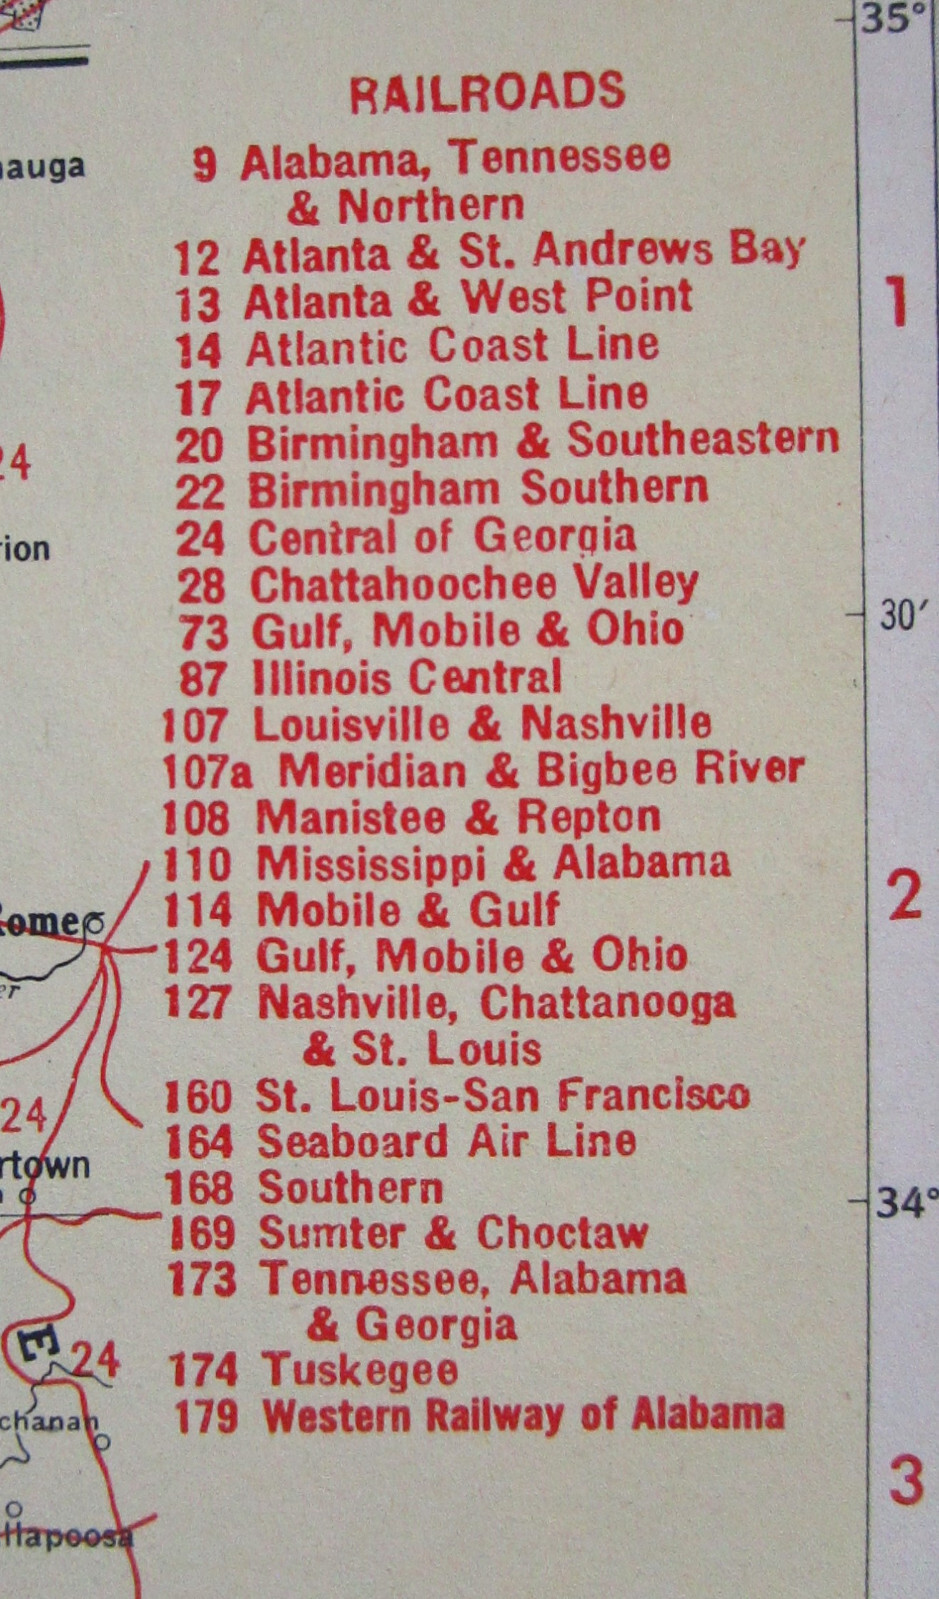 35°
RAILROADS
9 Alabama, Tennessee
& Northern
12 Atlanta & St. Andrews Bay
13 Atlanta & West Point
14 Atlantic Coast Line
17 Atlantic Coast Line
20 Birmingham & Southeastern
22 Birmingham Southern
24 Central of Georgia
28 Chattahoochee Valley
73 Gulf, Mobile & Ohio
87 Illinois Central
107 Louisville & Nashville
107a Meridian & Bigbee River
108 Manistee & Repton
110 Mississippi & Alabama
114 Mobile & Gulf
124 Gulf, Mobile & Ohio
127 Nashville, Chattanooga
& St. Louis
160 St. Louis-San Francisco
164 Seaboard Air Line
168 Southern
169 Sumter & Choctaw
173 Tennessee, Alabama
& Georgia
174 Tuskegee
179 Western Railway of Alabama
1
30′
2
34°
3
auga
24
rion
Rome
24
rtown
E
24
chanan
llapoosa